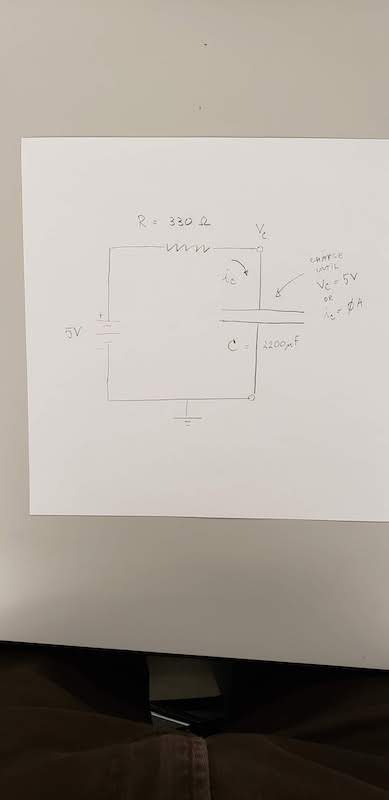 R = 330 Ω
Vc
ic
CHARGE
UNTIL
Vc = 5V
OR
ic = ØA
+
5V
C = 2200µF